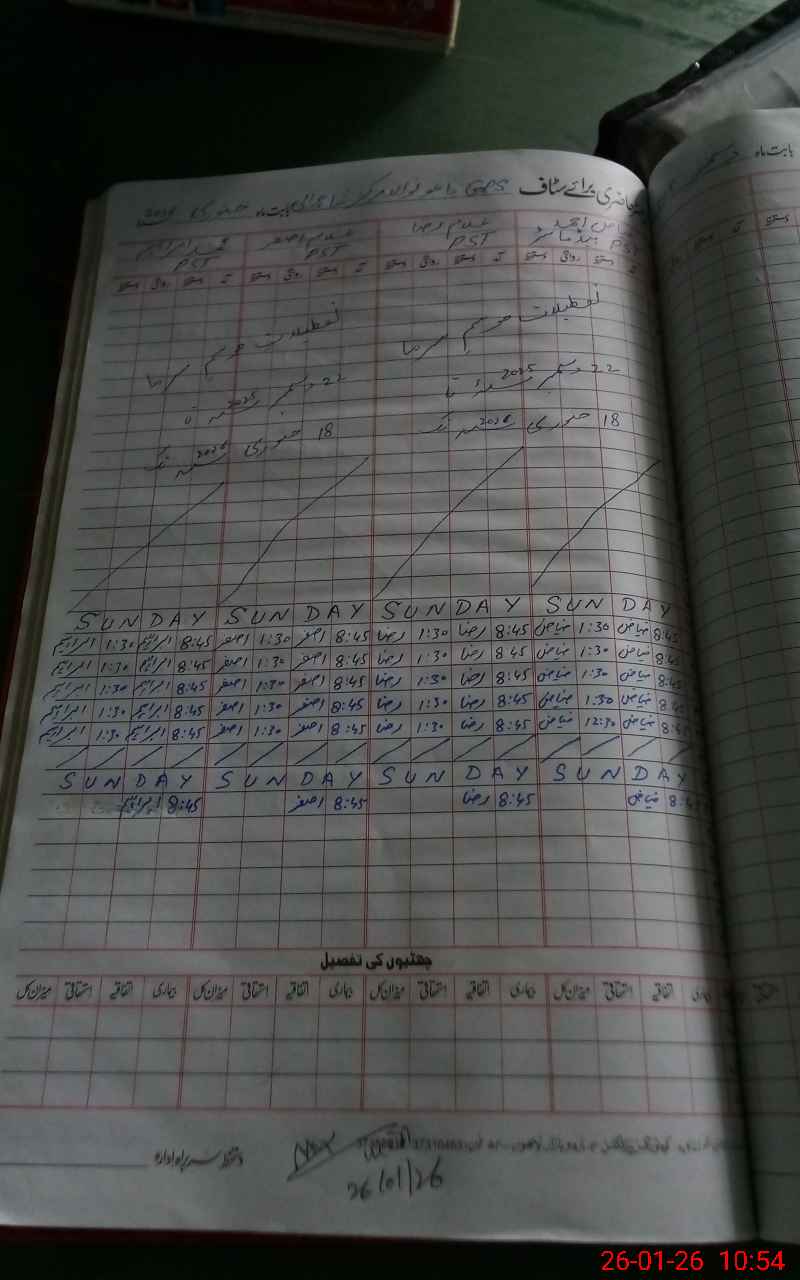 حاضری برائے سٹاف GPS بابت ماہ جنوری 2026
غلام رضا غلام اصغر محمد ابراہیم
PST PST PST PST ہیڈماسٹر
تعطیلات موسم سرما تعطیلات موسم سرما
22 دسمبر 2025 تا 22 دسمبر 2025 تا
18 جنوری 2026 تک 18 جنوری 2026 تک
SUNDAY SUNDAY SUNDAY SUNDAY
8:45 فیاض 1:30 فیاض 8:45 رضا 1:30 رضا 8:45 اصغر 1:30 اصغر 8:45 ابراہیم 1:30 ابراہیم
8:45 فیاض 1:30 فیاض 8:45 رضا 1:30 رضا 8:45 اصغر 1:30 اصغر 8:45 ابراہیم 1:30 ابراہیم
8:45 فیاض 1:30 فیاض 8:45 رضا 1:30 رضا 8:45 اصغر 1:30 اصغر 8:45 ابراہیم 1:30 ابراہیم
8:45 فیاض 1:30 فیاض 8:45 رضا 1:30 رضا 8:45 اصغر 1:30 اصغر 8:45 ابراہیم 1:30 ابراہیم
8:45 فیاض 12:30 فیاض 8:45 رضا 1:30 رضا 8:45 اصغر 1:30 اصغر 8:45 ابراہیم 1:30 ابراہیم
SUNDAY SUNDAY SUNDAY SUNDAY
8:45 فیاض 8:45 رضا 8:45 اصغر 8:45 ابراہیم
چھٹیوں کی تفصیل
بیماری اتفاقیہ استحقاقی میزان کل بیماری اتفاقیہ استحقاقی میزان کل بیماری اتفاقیہ استحقاقی میزان کل بیماری اتفاقیہ استحقاقی میزان کل
دستخط سربراہ ادارہ
26/01/26
بابت ماہ دسمبر
26-01-26 10:54